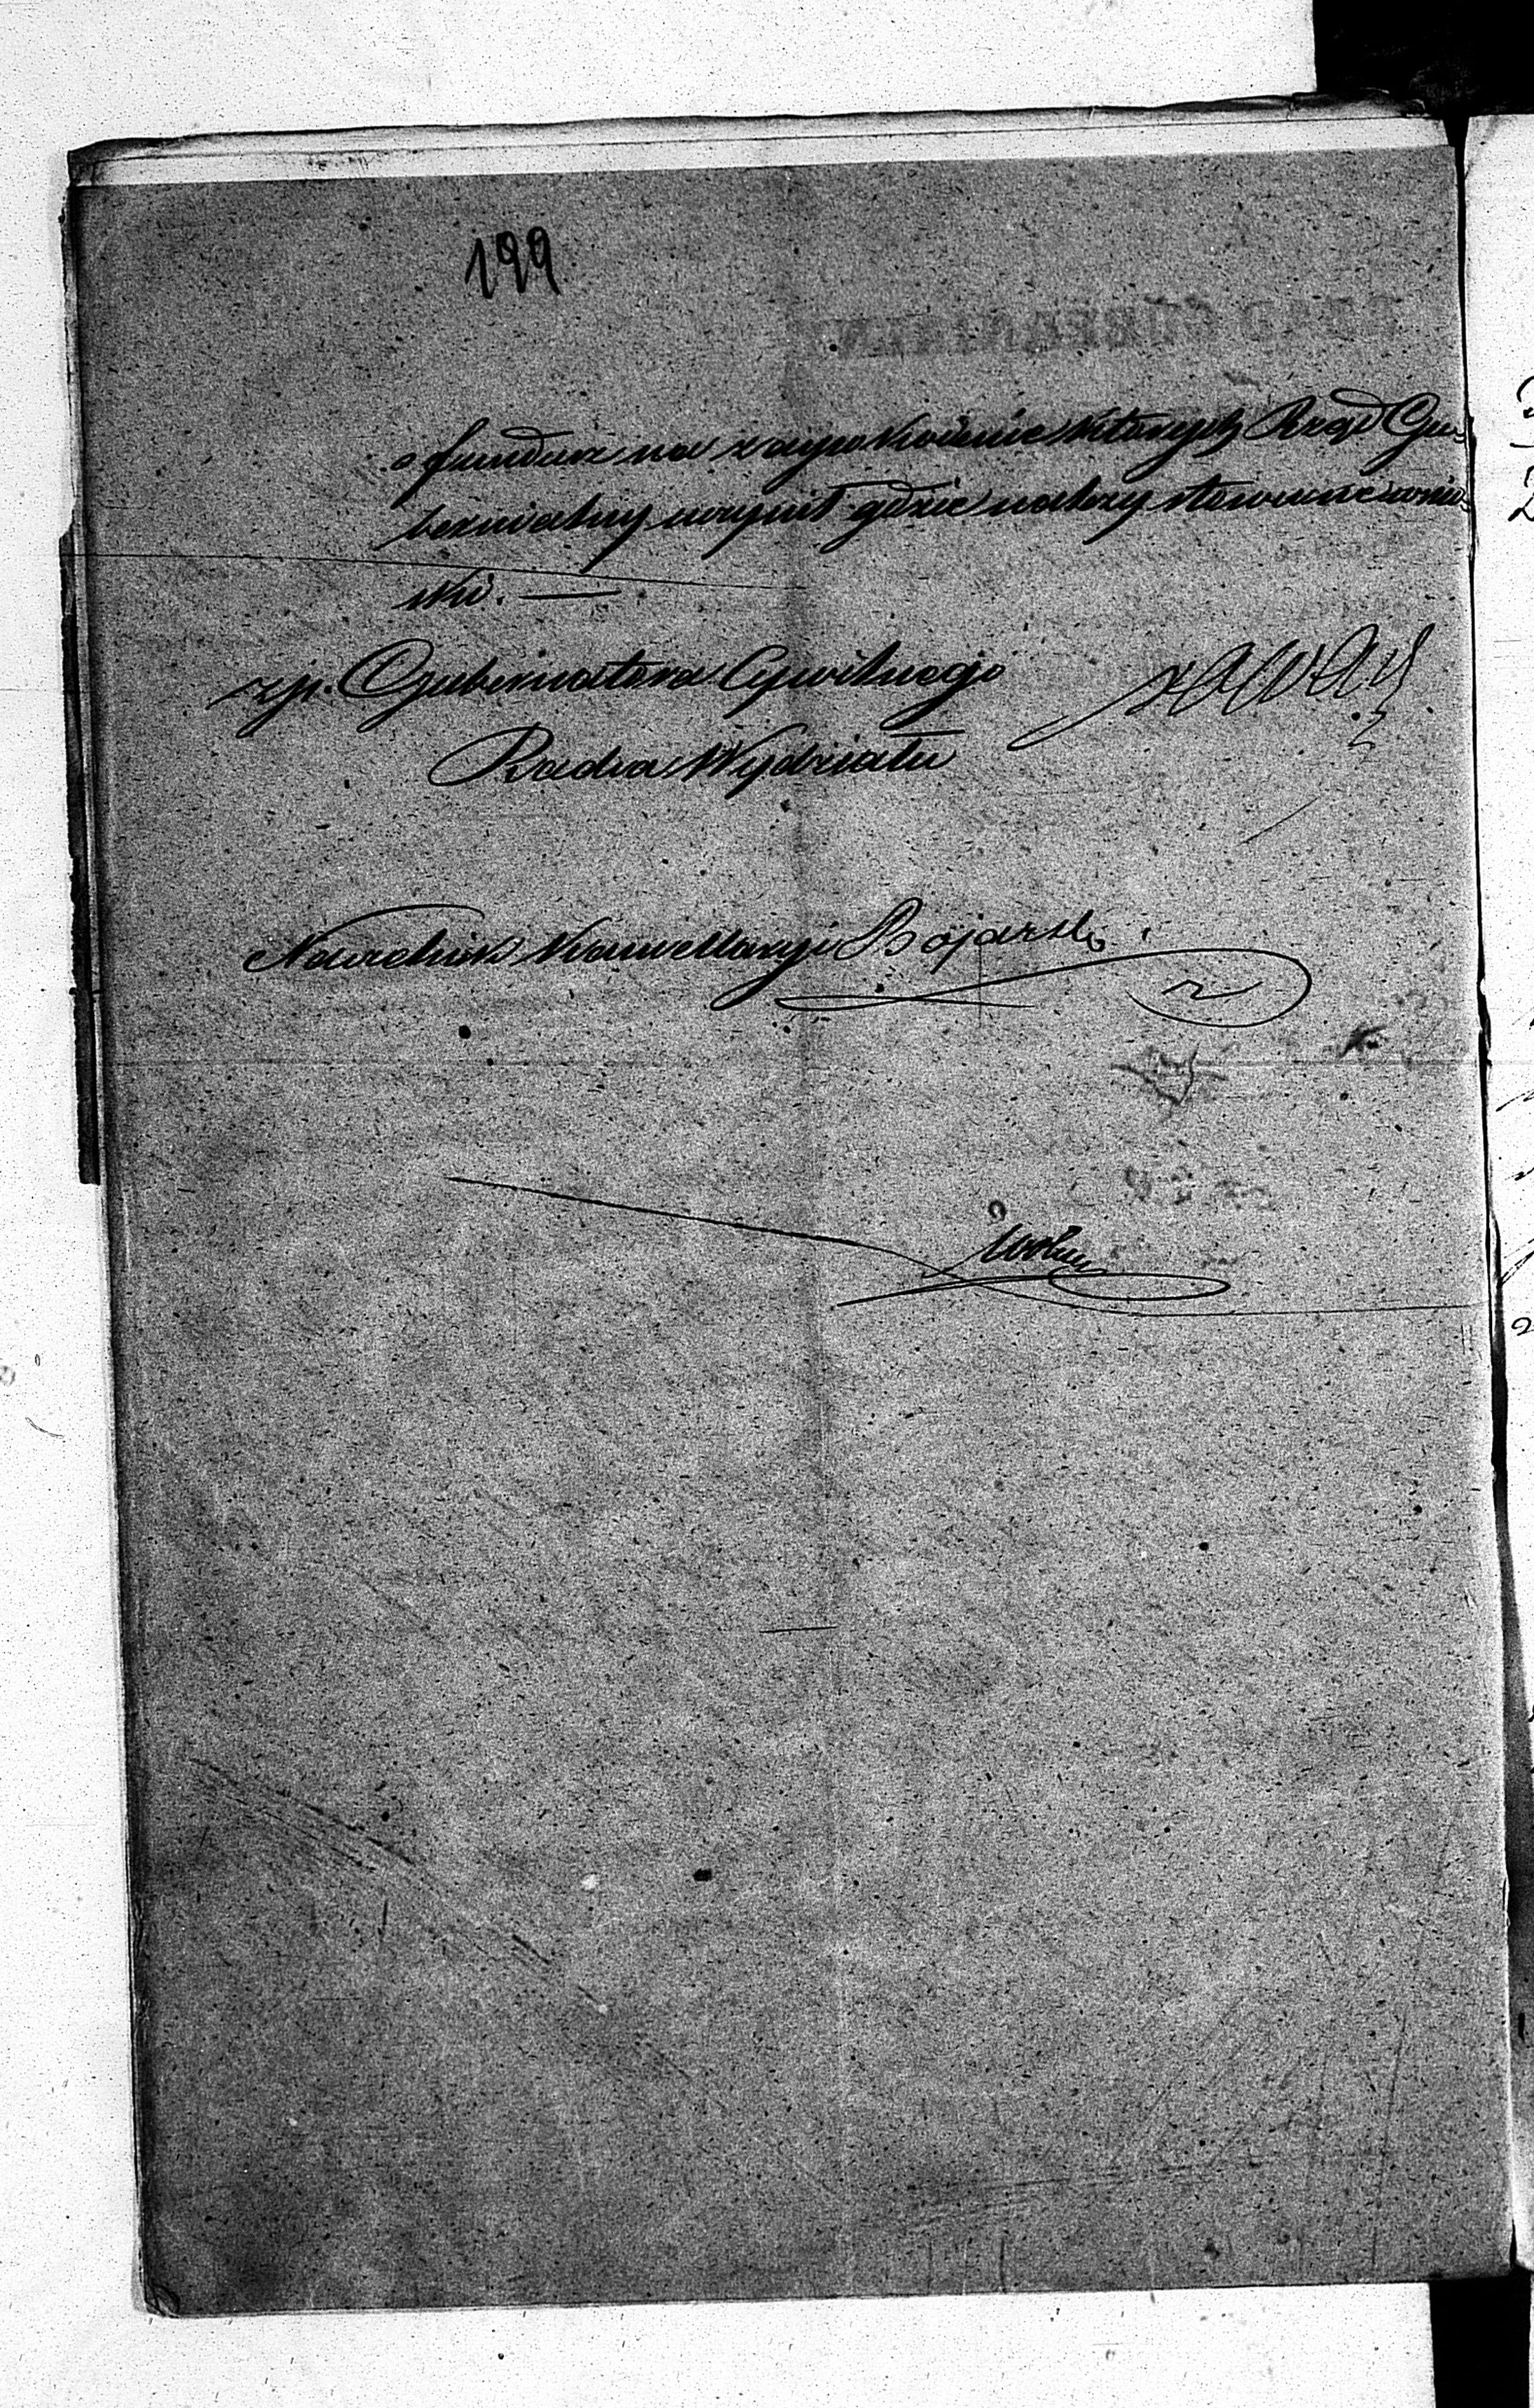 199
o fundusz na zaspokoienie których Rząd Gu-
bernialny uczynił gdzie należy stosowne wnio-
ski. —
zp. Gubernatora Cywilnego
Radca Wydziału
Naczelnik Kancellaryi Bojarski